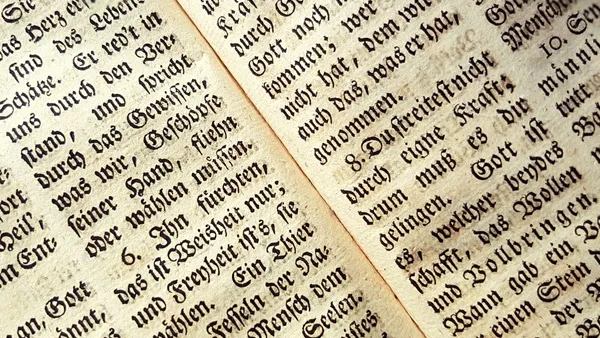 Sie
ſind des Lebens
Schätze. Er red't in
uns durch den Ver-
ſtand, und ſpricht
durch das Gewiſſen,
was wir, Geſchöpfe
ſeiner Hand, fliehn
oder wählen müſſen.
6. Ihn fürchten,
das iſt Weisheit nur;
und Freyheit iſt's, ſie
wählen. Ein Thier
Feſſeln der Na-
Menſch dem
Seelen.
Gott
durch
Gott noch
kommen; wer
nicht hat, dem
auch das, was er hat,
genommen.
8. Du ſtreiteſt nicht
durch eigne Kraft;
drum muß es dir
gelingen. Gott iſt
es, welcher beydes
ſchafft, das Wollen
und Vollbringen.
Wann gab ein
einen Stein
10.
männli